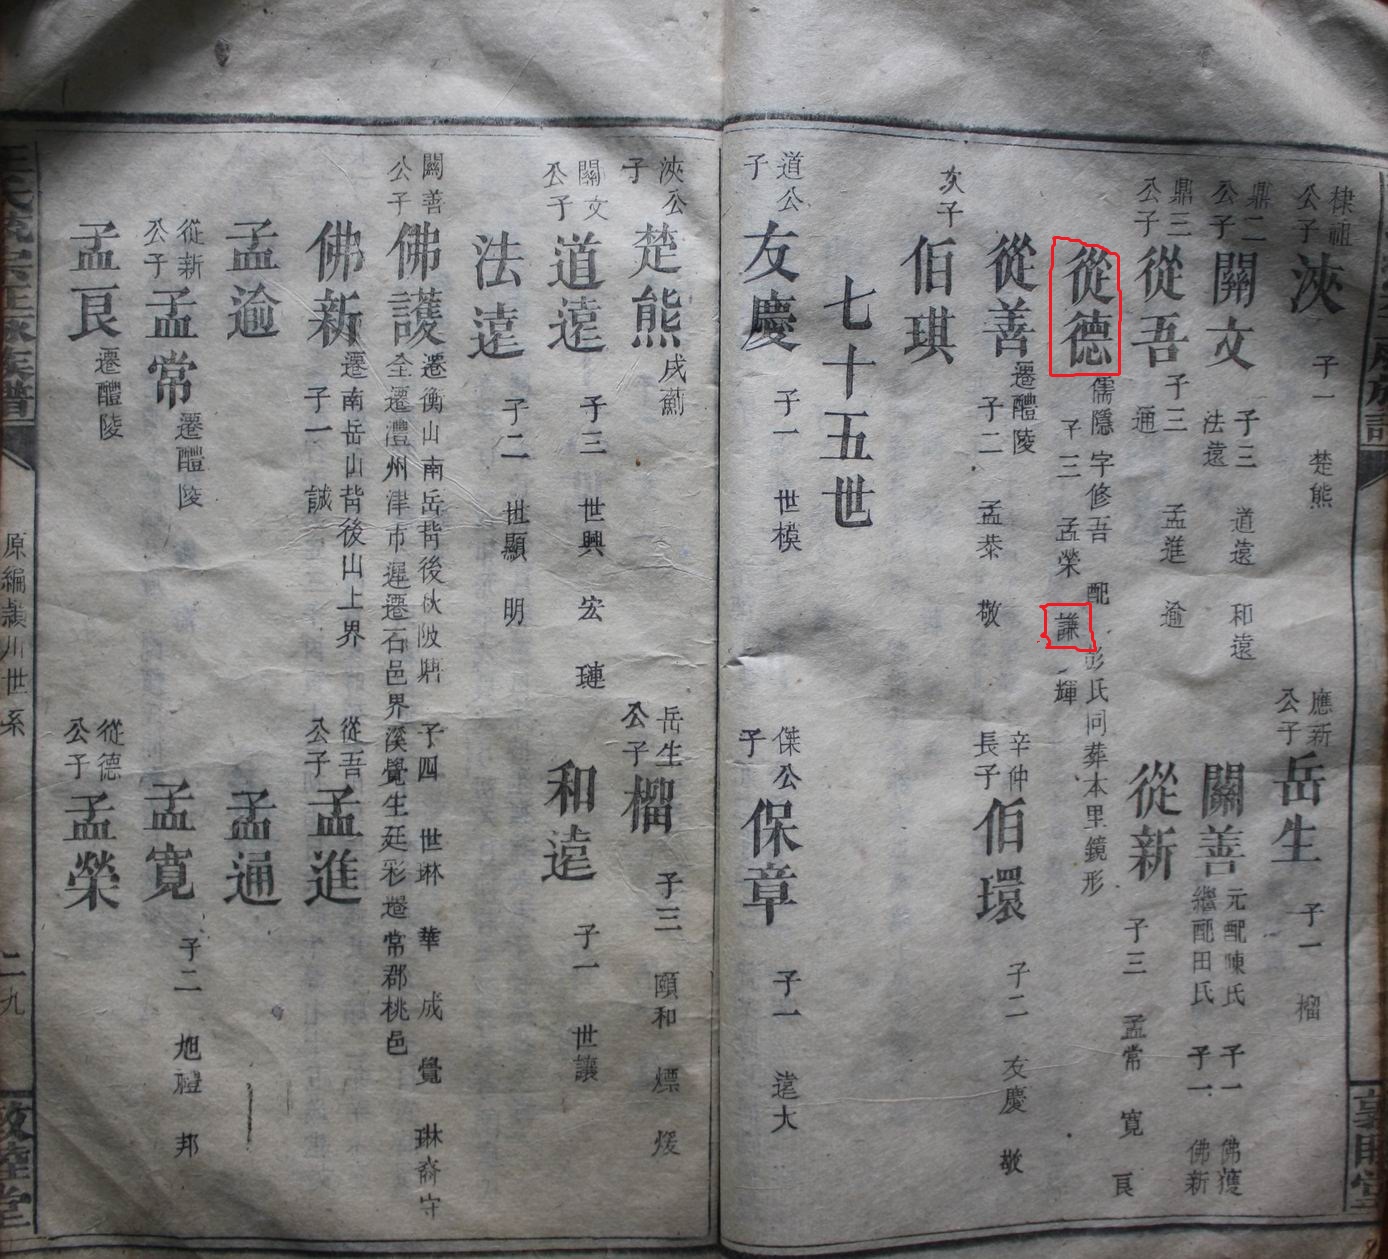 棣祖公子
浹
子一 楚熊
應新公子
岳生
子一 榴
鼎二公子
關文
子三 道遠 和遠
法遠
關善
元配陳氏 子一 佛護
繼配田氏 子一 佛新
鼎三公子
從吾
子三 孟進 逾
通
從新
子三 孟常 寬 良
從德
儒隱 字修吾 配彭氏同葬本里鏡形
子三 孟榮 謙 輝
從善
遷醴陵
子二 孟恭 敬
辛仲長子
伯環
子二 友慶 敬
次子
伯琪
七十五世
道公子
友慶
子一 世模
傑公子
保章
子一 遠大
浹公子
楚熊
戌薊
岳生公子
榴
子三 頤和 煙 煖
關文公子
道遠
子三 世興 宏 璉
和遠
子一 世讓
法遠
子二 世顯 明
關善公子
佛護
遷衡山南岳背後 子四 世琳 華 成 覺 琳裔守
全遷澧州津市遲遷石邑界溪覺生廷彩遷常郡桃邑
佛新
遷南岳山背後山上界
子一 誠
從吾公子
孟進
孟逾
孟通
從新公子
孟常
遷醴陵
孟寬
子二 旭禮 邦
孟良
遷醴陵
從德公子
孟榮
原編潁川世系
二九
敦睦堂